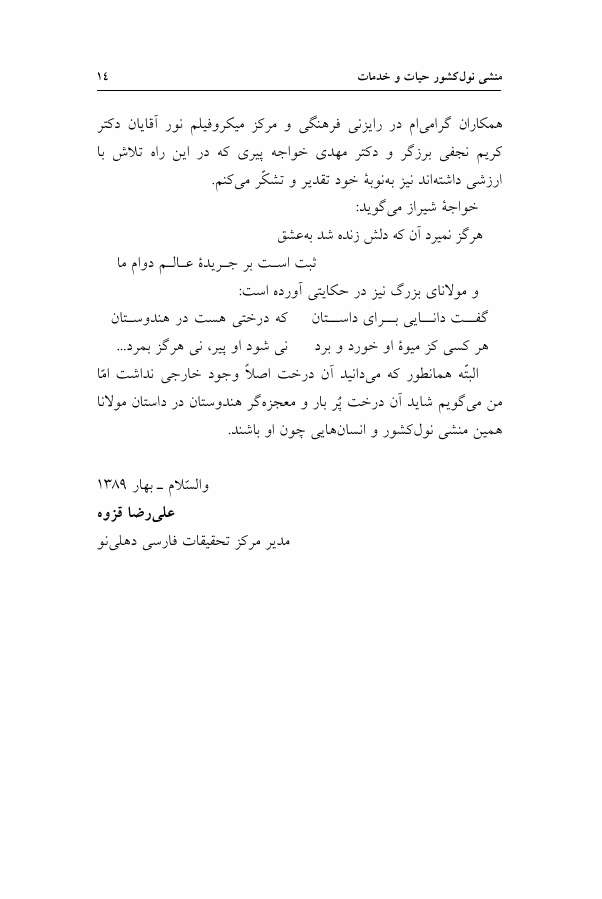 منشی نول‌کشور حیات و خدمات ١٤
همکاران گرامی‌ام در رایزنی فرهنگی و مرکز میکروفیلم نور آقایان دکتر
کریم نجفی برزگر و دکتر مهدی خواجه پیری که در این راه تلاش با
ارزشی داشته‌اند نیز به‌نوبهٔ خود تقدیر و تشکّر می‌کنم.
خواجهٔ شیراز می‌گوید:
هرگز نمیرد آن که دلش زنده شد به‌عشق
ثبت است بر جریدهٔ عالم دوام ما
و مولانای بزرگ نیز در حکایتی آورده است:
گفت دانایی برای داستان که درختی هست در هندوستان
هر کسی کز میوهٔ او خورد و برد نی شود او پیر، نی هرگز بمرد...
البتّه همانطور که می‌دانید آن درخت اصلاً وجود خارجی نداشت امّا
من می‌گویم شاید آن درخت پُر بار و معجزه‌گر هندوستان در داستان مولانا
همین منشی نول‌کشور و انسان‌هایی چون او باشند.
والسّلام ـ بهار ١٣٨٩
علی‌رضا قزوه
مدیر مرکز تحقیقات فارسی دهلی‌نو